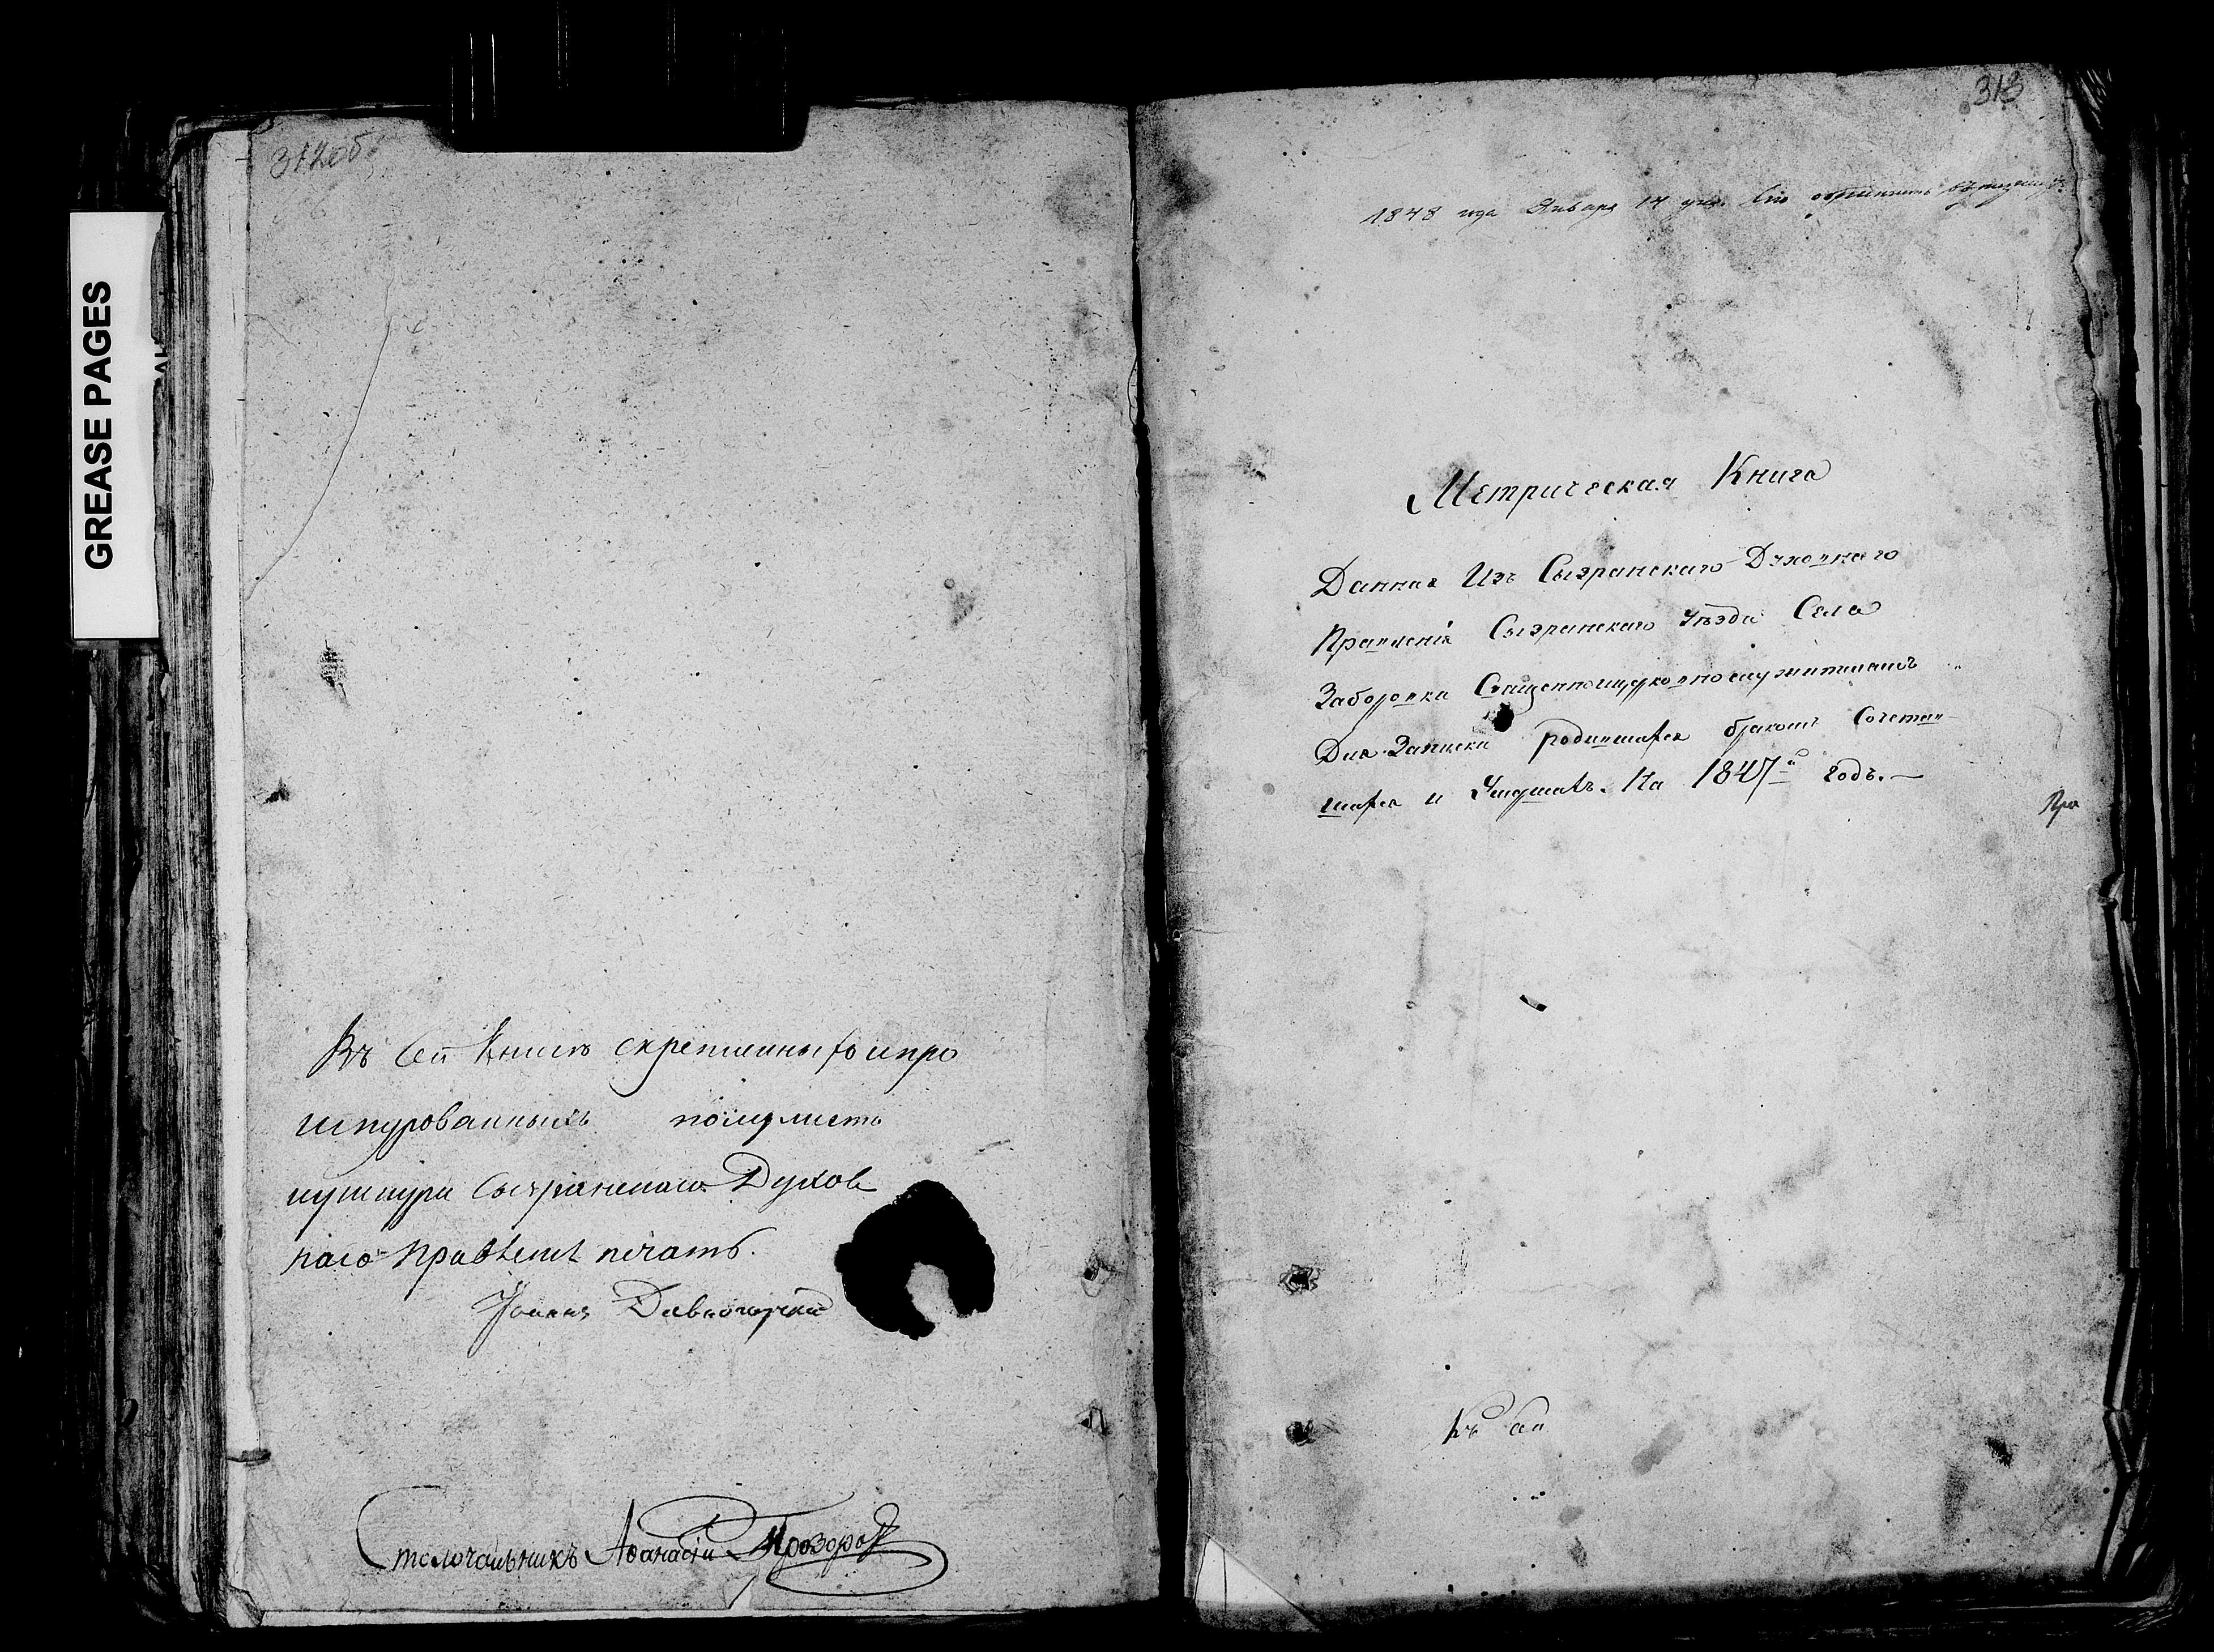 GREASE PAGES
312об
Въ сей книгѣ скрепленныхъ и про
шнурованныхъ полулистъ
Сызранскаго Духов
наго Правленія печать.
Іоаннъ
Столоначальникъ Аѳанасій Прозоров
313
1848 года Января 14 дня
Метрическая Книга
Данная Изъ Сызранскаго Духовнаго
Правленія Сызранскаго Уѣзда Села
Заборовки Священноцерковнослужителямъ
Для Записки родившихся бракомъ Сочетав
шихся и Умершихъ. На 1847й годъ. —
Пра
Къ сей